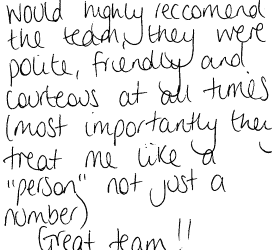 would highly reccomend
the team, they were
polite, friendly and
courteous at all times
(most importantly they
treat me like a
"person" not just a
number)
Great team !!